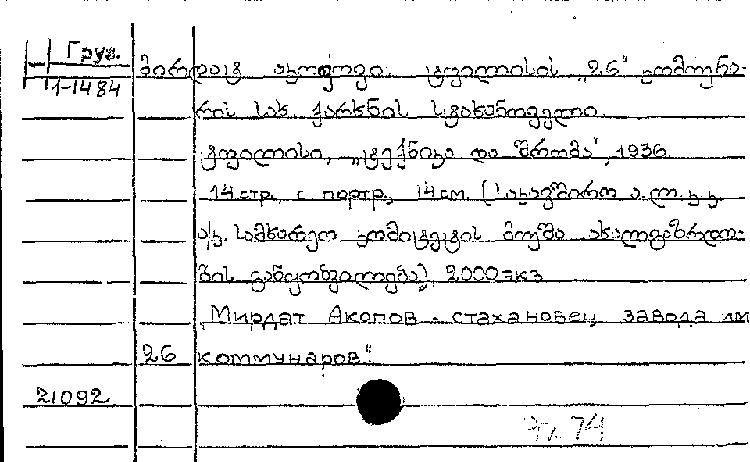 Груз.
1-1484
მირდატ აკოფოვი. ტფილისის „26“ კომუნა-
რის სახ. ქარხნის სტახანოველი.
ტფილისი, „ტექნიკა და შრომა“, 1936
14 стр. с портр., 14 см. (საკავშირო ა.ლ.კ.კ.
ა/კ. სამხარეო კომიტეტის მუშა ახალგაზრდო-
ბის განყოფილება) 2000 экз
„Мирдат Акопов - стахановец завода им
26 коммунаров“
21092
74